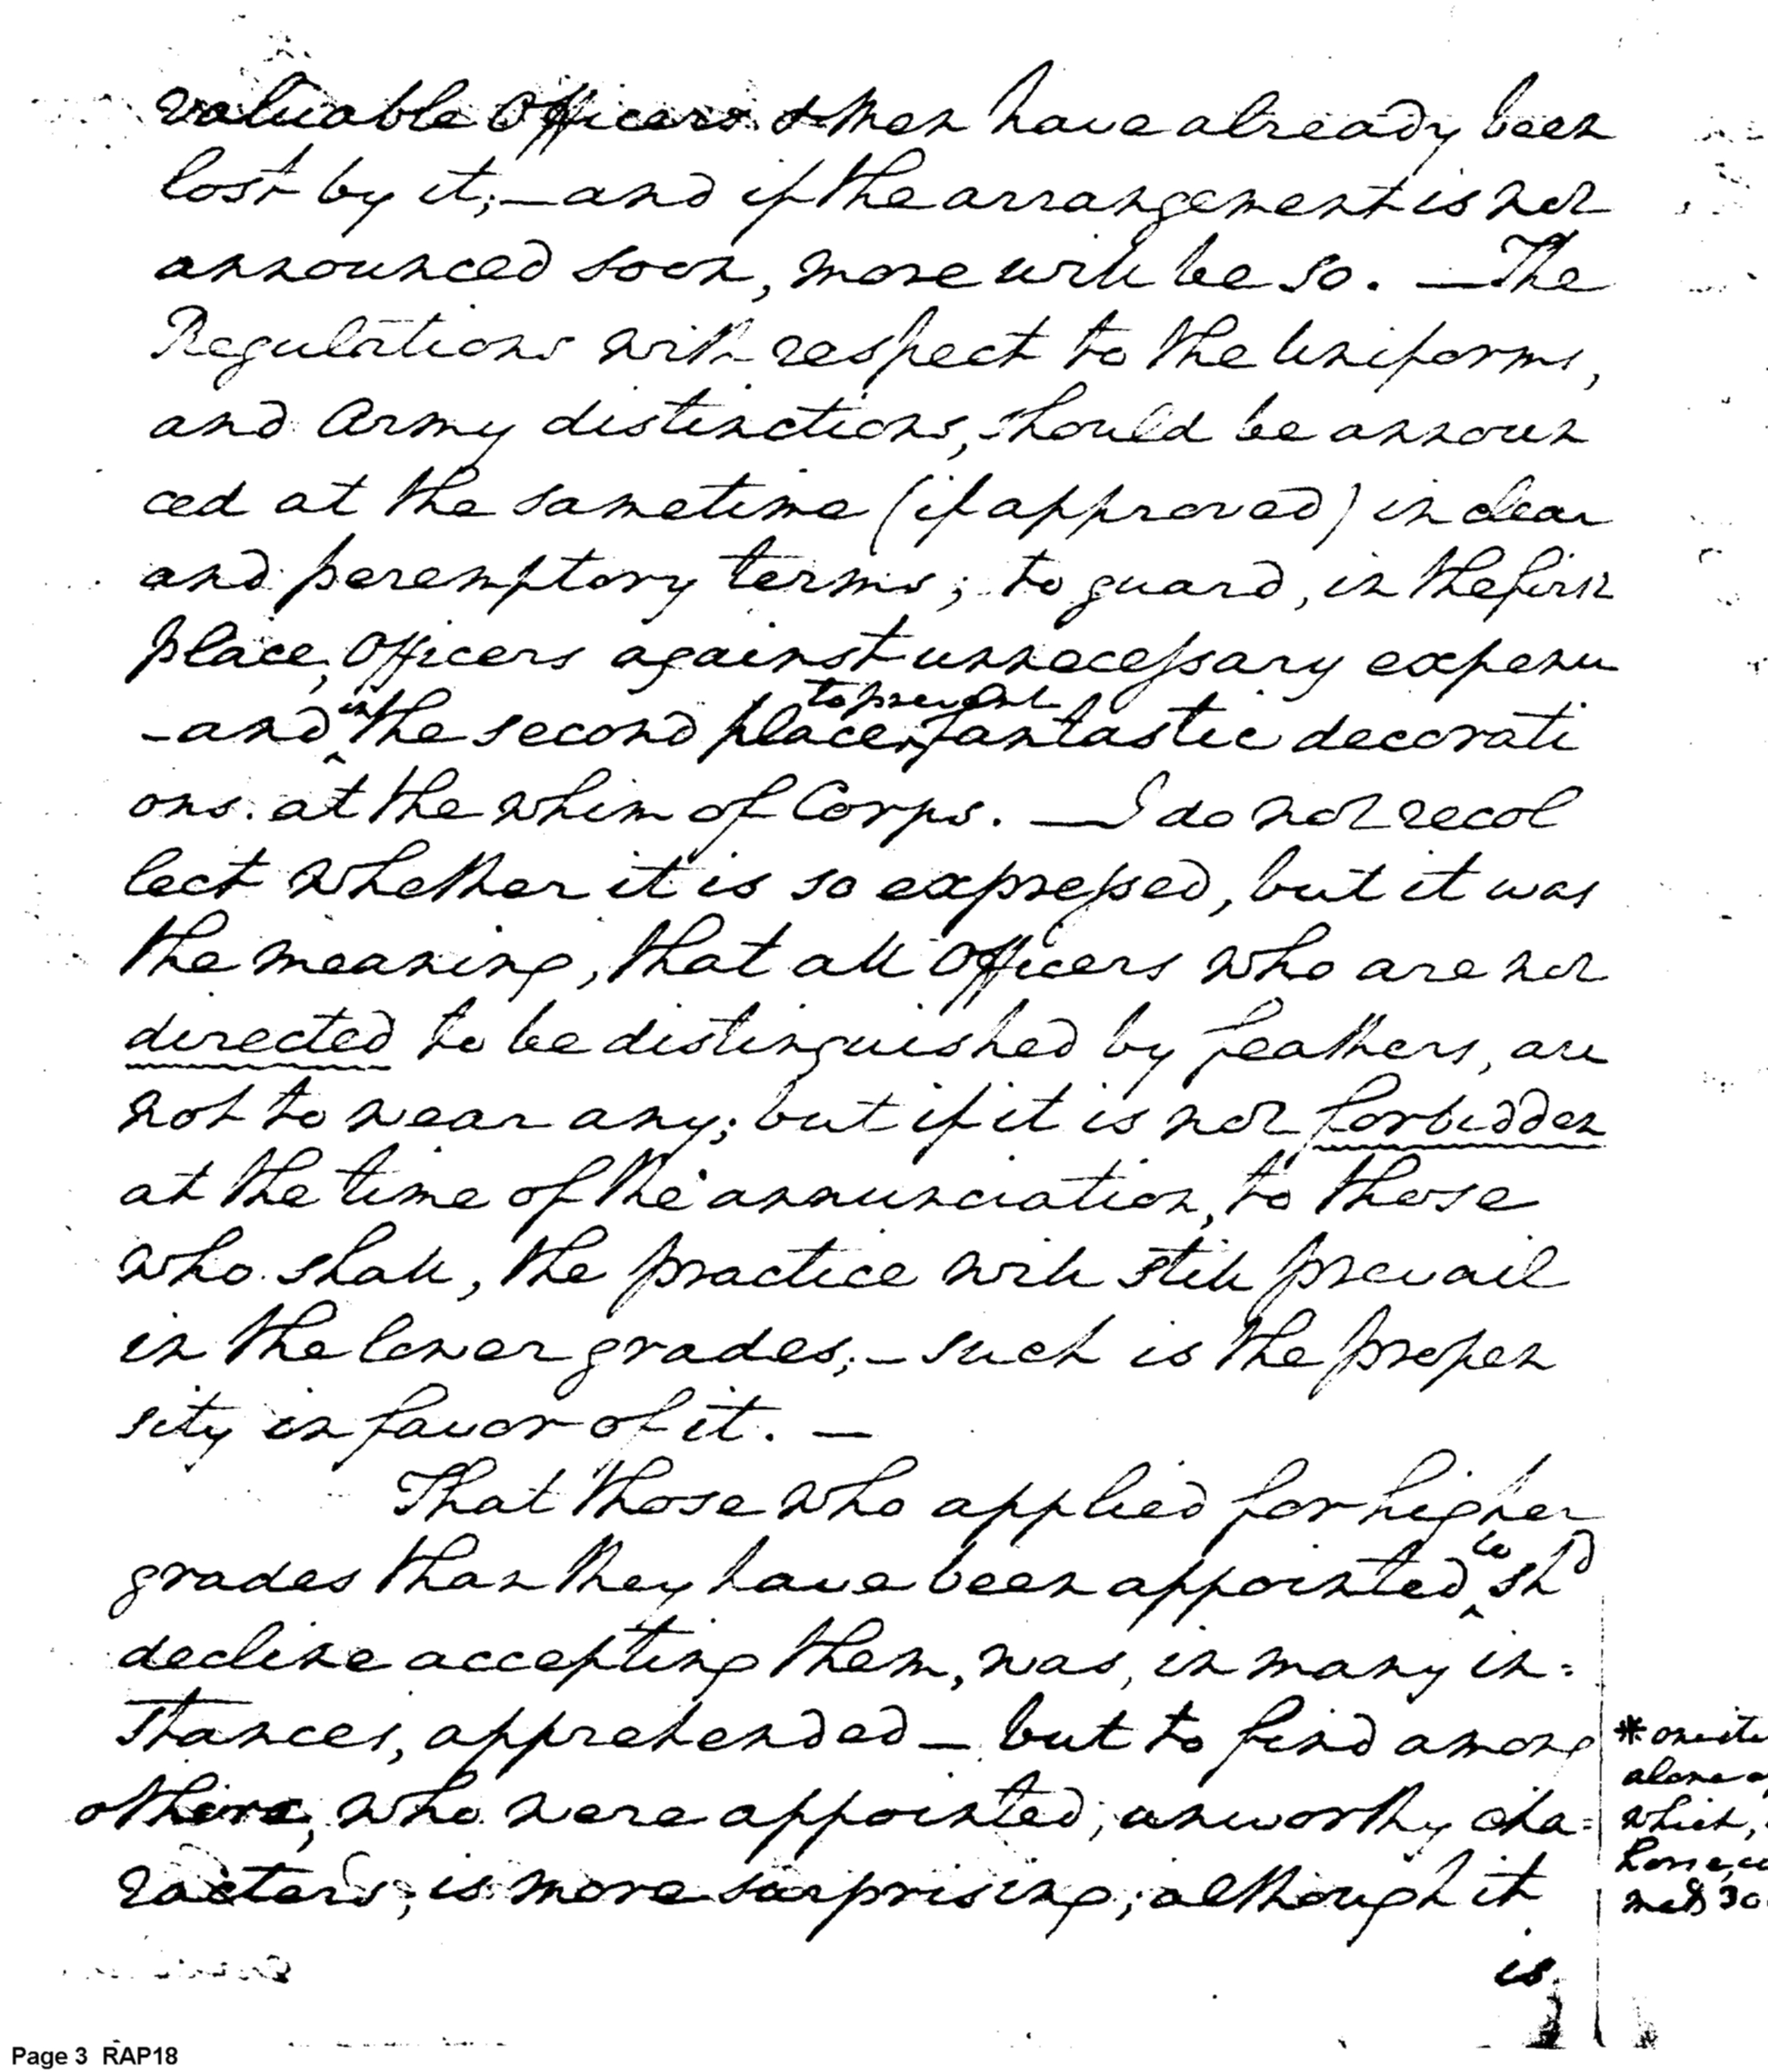 valuable Officers & Men have already been
lost by it;—and if the arrangement is not
announced soon, more will be so. — The
Regulations with respect to the Uniforms,
and Army distinctions, should be announ
ced at the sametime (if approved) in clear
and peremptory terms; to guard, in the first
place, Officers against unnecessary expence
to prevent
—and in the second place, fantastic decorati
ons at the whim of Corps. — I do not recol
lect whether it is so expressed, but it was
the meaning, that all Officers who are not
directed to be distinguished by feathers, are
not to wear any; but if it is not forbidden
at the time of the annunciation, to those
who shall, the practice will still prevail
in the lower grades;—such is the propen
sity in favor of it. —
That those who applied for higher
grades than they have been appointed to shd
decline accepting them, was, in many in=
stances, apprehended — but to find among
others, who were appointed, unworthy cha=
racters, is more surprising; although it
is
*
alone
which,
30
Page 3 RAP18